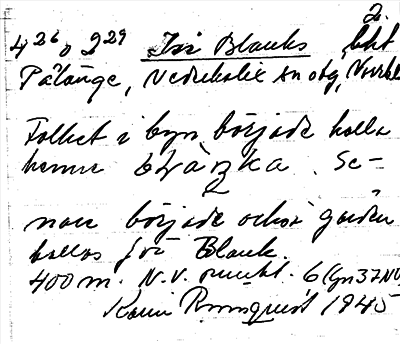 2.
4 26 o 2 29 Isi Blanks bht
Pålänge, Nederkalix sn obg, Norrb
Folket i byn började kalla
henne blàŋka. Se-
nare började också gården
kallas för Blank.
400 m. N.V. punkt. 6 (Gn 37NV
Karin Rönnquist 1945